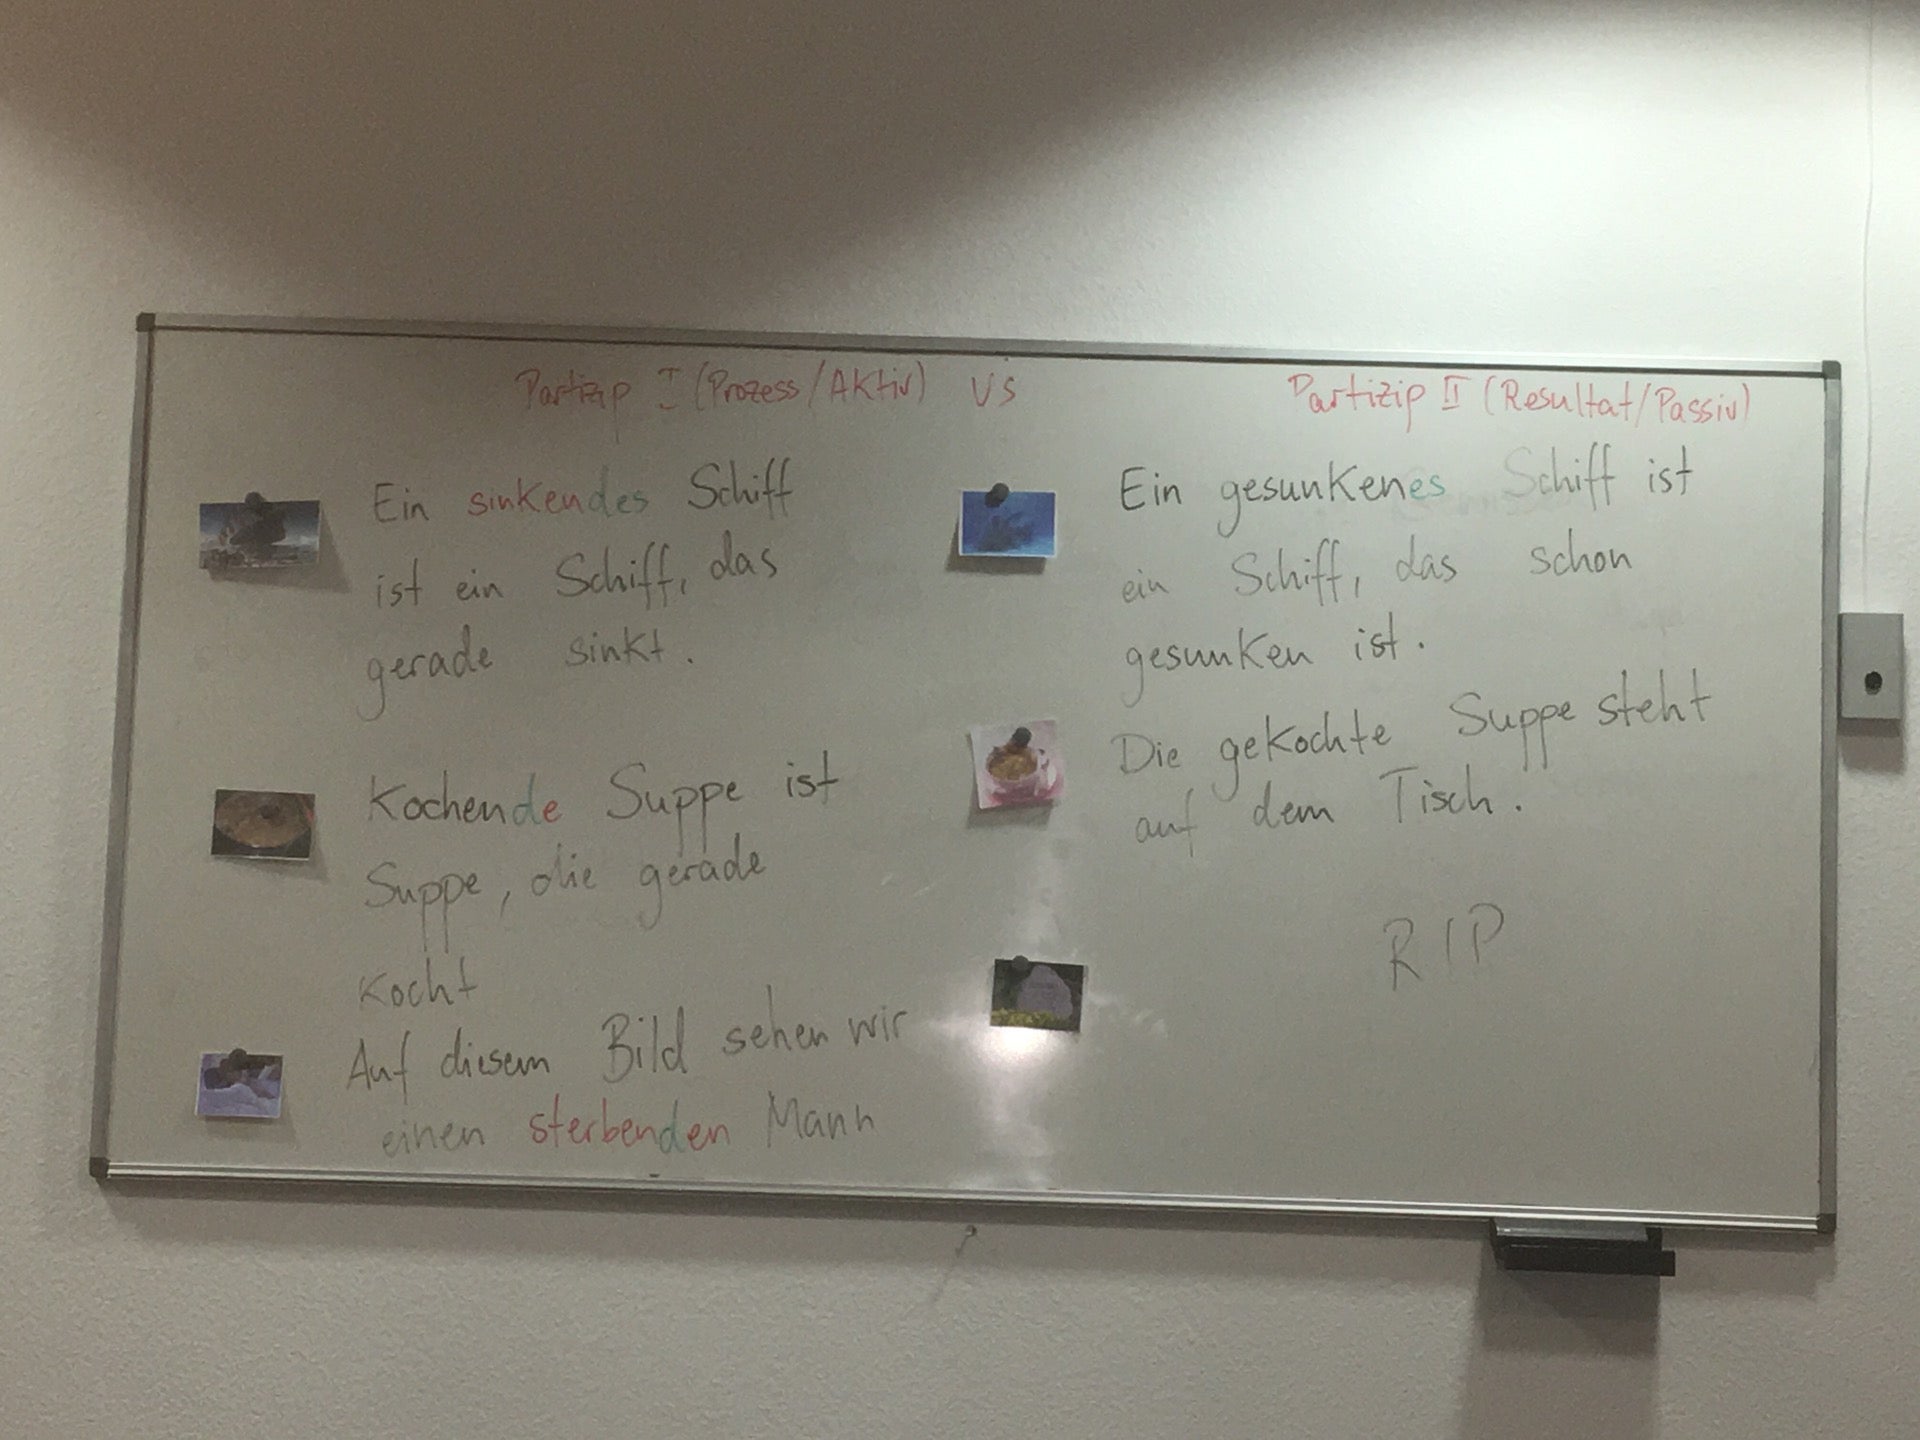 Partizip I (Prozess/Aktiv) VS Partizip II (Resultat/Passiv)
Ein sinkendes Schiff
ist ein Schiff, das
gerade sinkt.
Kochende Suppe ist
Suppe, die gerade
kocht
Auf diesem Bild sehen wir
einen sterbenden Mann
Ein gesunkenes Schiff ist
ein Schiff, das schon
gesunken ist.
Die gekochte Suppe steht
auf dem Tisch.
RIP